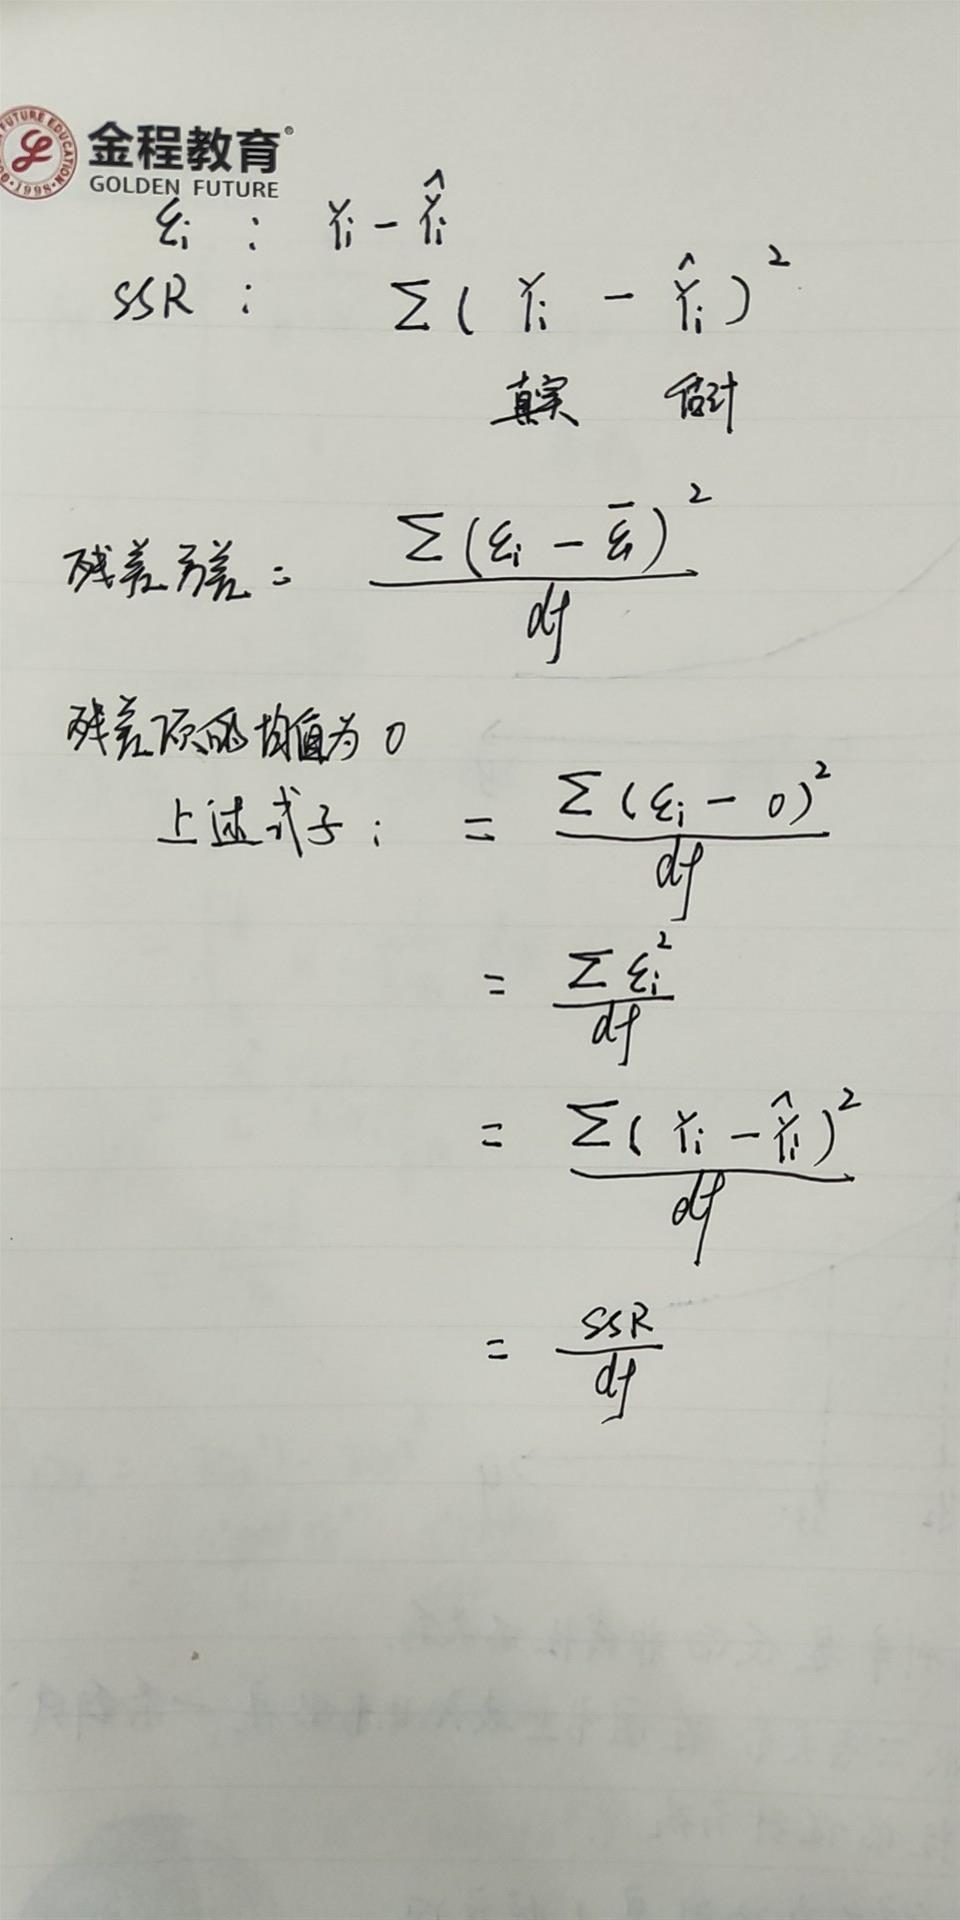 FUTURE EDUCATION
·1998·
金程教育®
GOLDEN FUTURE
εi : Yi - Ŷi
SSR : Σ( Yi - Ŷi )²
真实 估计
残差方差 = Σ(εi - ε̄i)² / df
残差项的均值为0
上述式子: = Σ(εi - 0)² / df
= Σεi² / df
= Σ( Yi - Ŷi )² / df
= SSR / df